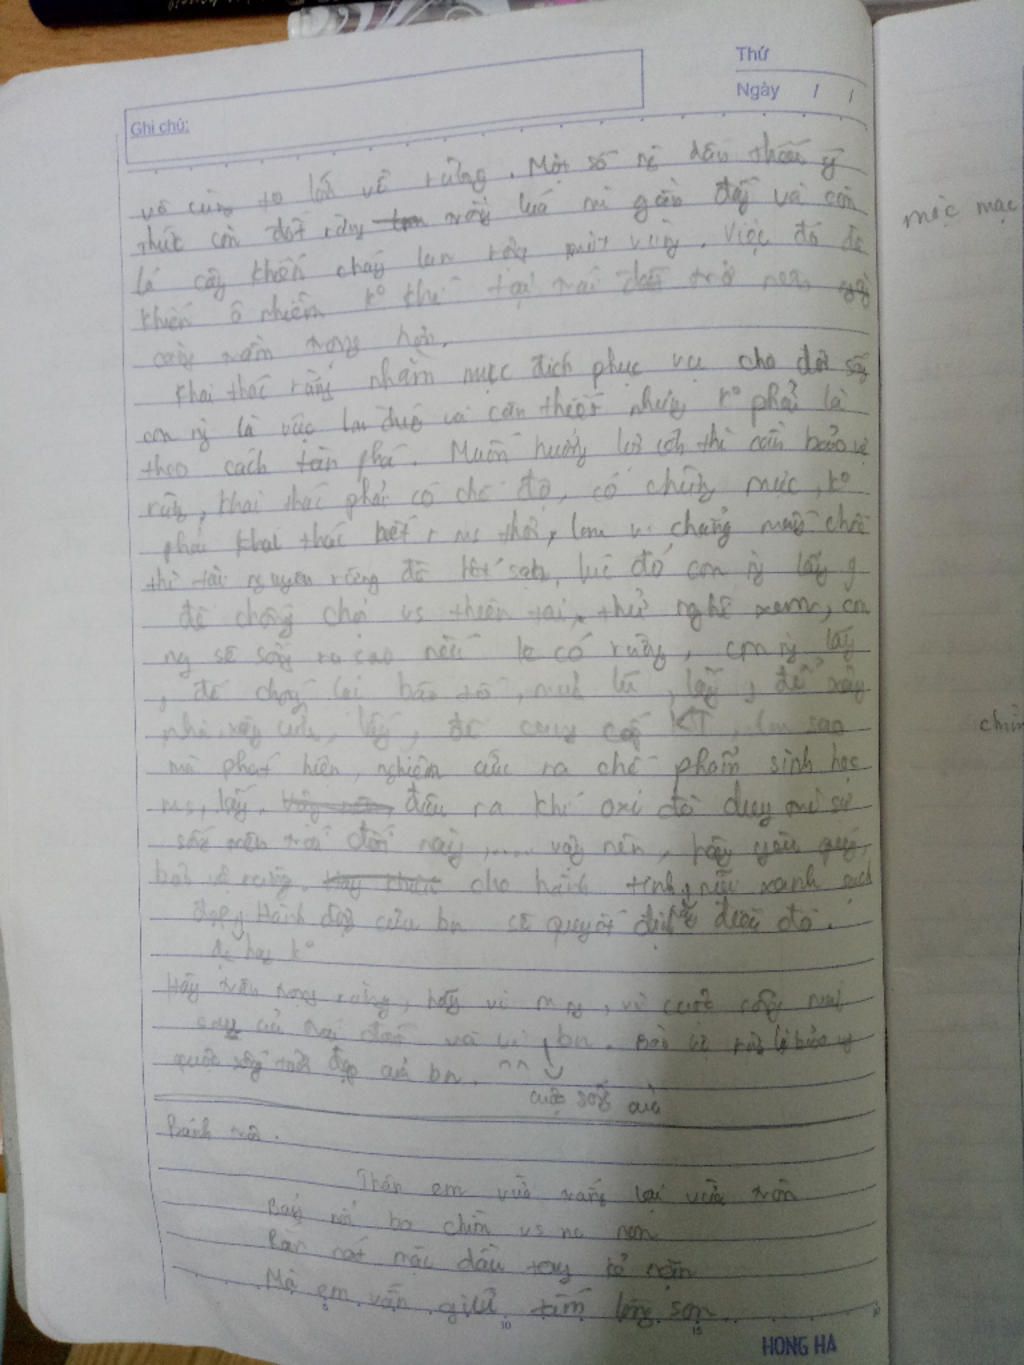 Thứ
Ngày / /
Ghi chú:
vô cùng to lớn về rừng. Một số ng dân thiếu ý
thức còn đốt rừng
lá cây khiến cháy lan rộng một vùng. Việc đó đã
khiến ô nhiễm k° khí tại trái đất trở nên
càng trầm trọng hơn.
Khai thác rừng nhằm mục đích phục vụ cho đời sống
con ng là việc cần thiết nhưng k° phải là
theo cách tàn phá. Muốn hưởng lợi ích thì cần bảo vệ
rừng, khai thác phải có chế độ, có chừng mực, k°
phải khai thác hết r ms thôi, làm v. chẳng mấy chốc
thì tài nguyên rừng đã hết sạch, lúc đó con ng lấy g
để chống chọi vs thiên tai, thử nghĩ xem, con
ng sẽ sống ra sao nếu k có rừng, con ng lấy
j để chống lại bão tố, mưa lũ, lấy j để xây
nhà, xây cửa, lấy j để cung cấp KT, làm sao
mà phát hiện, nghiên cứu ra chế phẩm sinh học
ms, lấy điều ra khí oxi để duy trì sự
sống trên trái đất này,.... vậy nên, hãy yêu quý,
bảo vệ rừng. cho hành tinh xanh sạch
đẹp, Hành động của bn sẽ quyết định điều đó.
hay k°
Hãy trân trọng rừng, hãy vì mng, vì cuộc sống mai
sau của trái đất và vì bn. Bảo vệ
cuộc sống tươi đẹp của bn. ^^
cuộc sống của
Bánh trôi.
Thân em vừa trắng lại vừa tròn
Bảy nổi ba chìm vs nc non
Rắn nát mặc dầu tay kẻ nặn
Mà em vẫn giữ tấm lòng son
5 10 15
HONG HA
mộc mạc